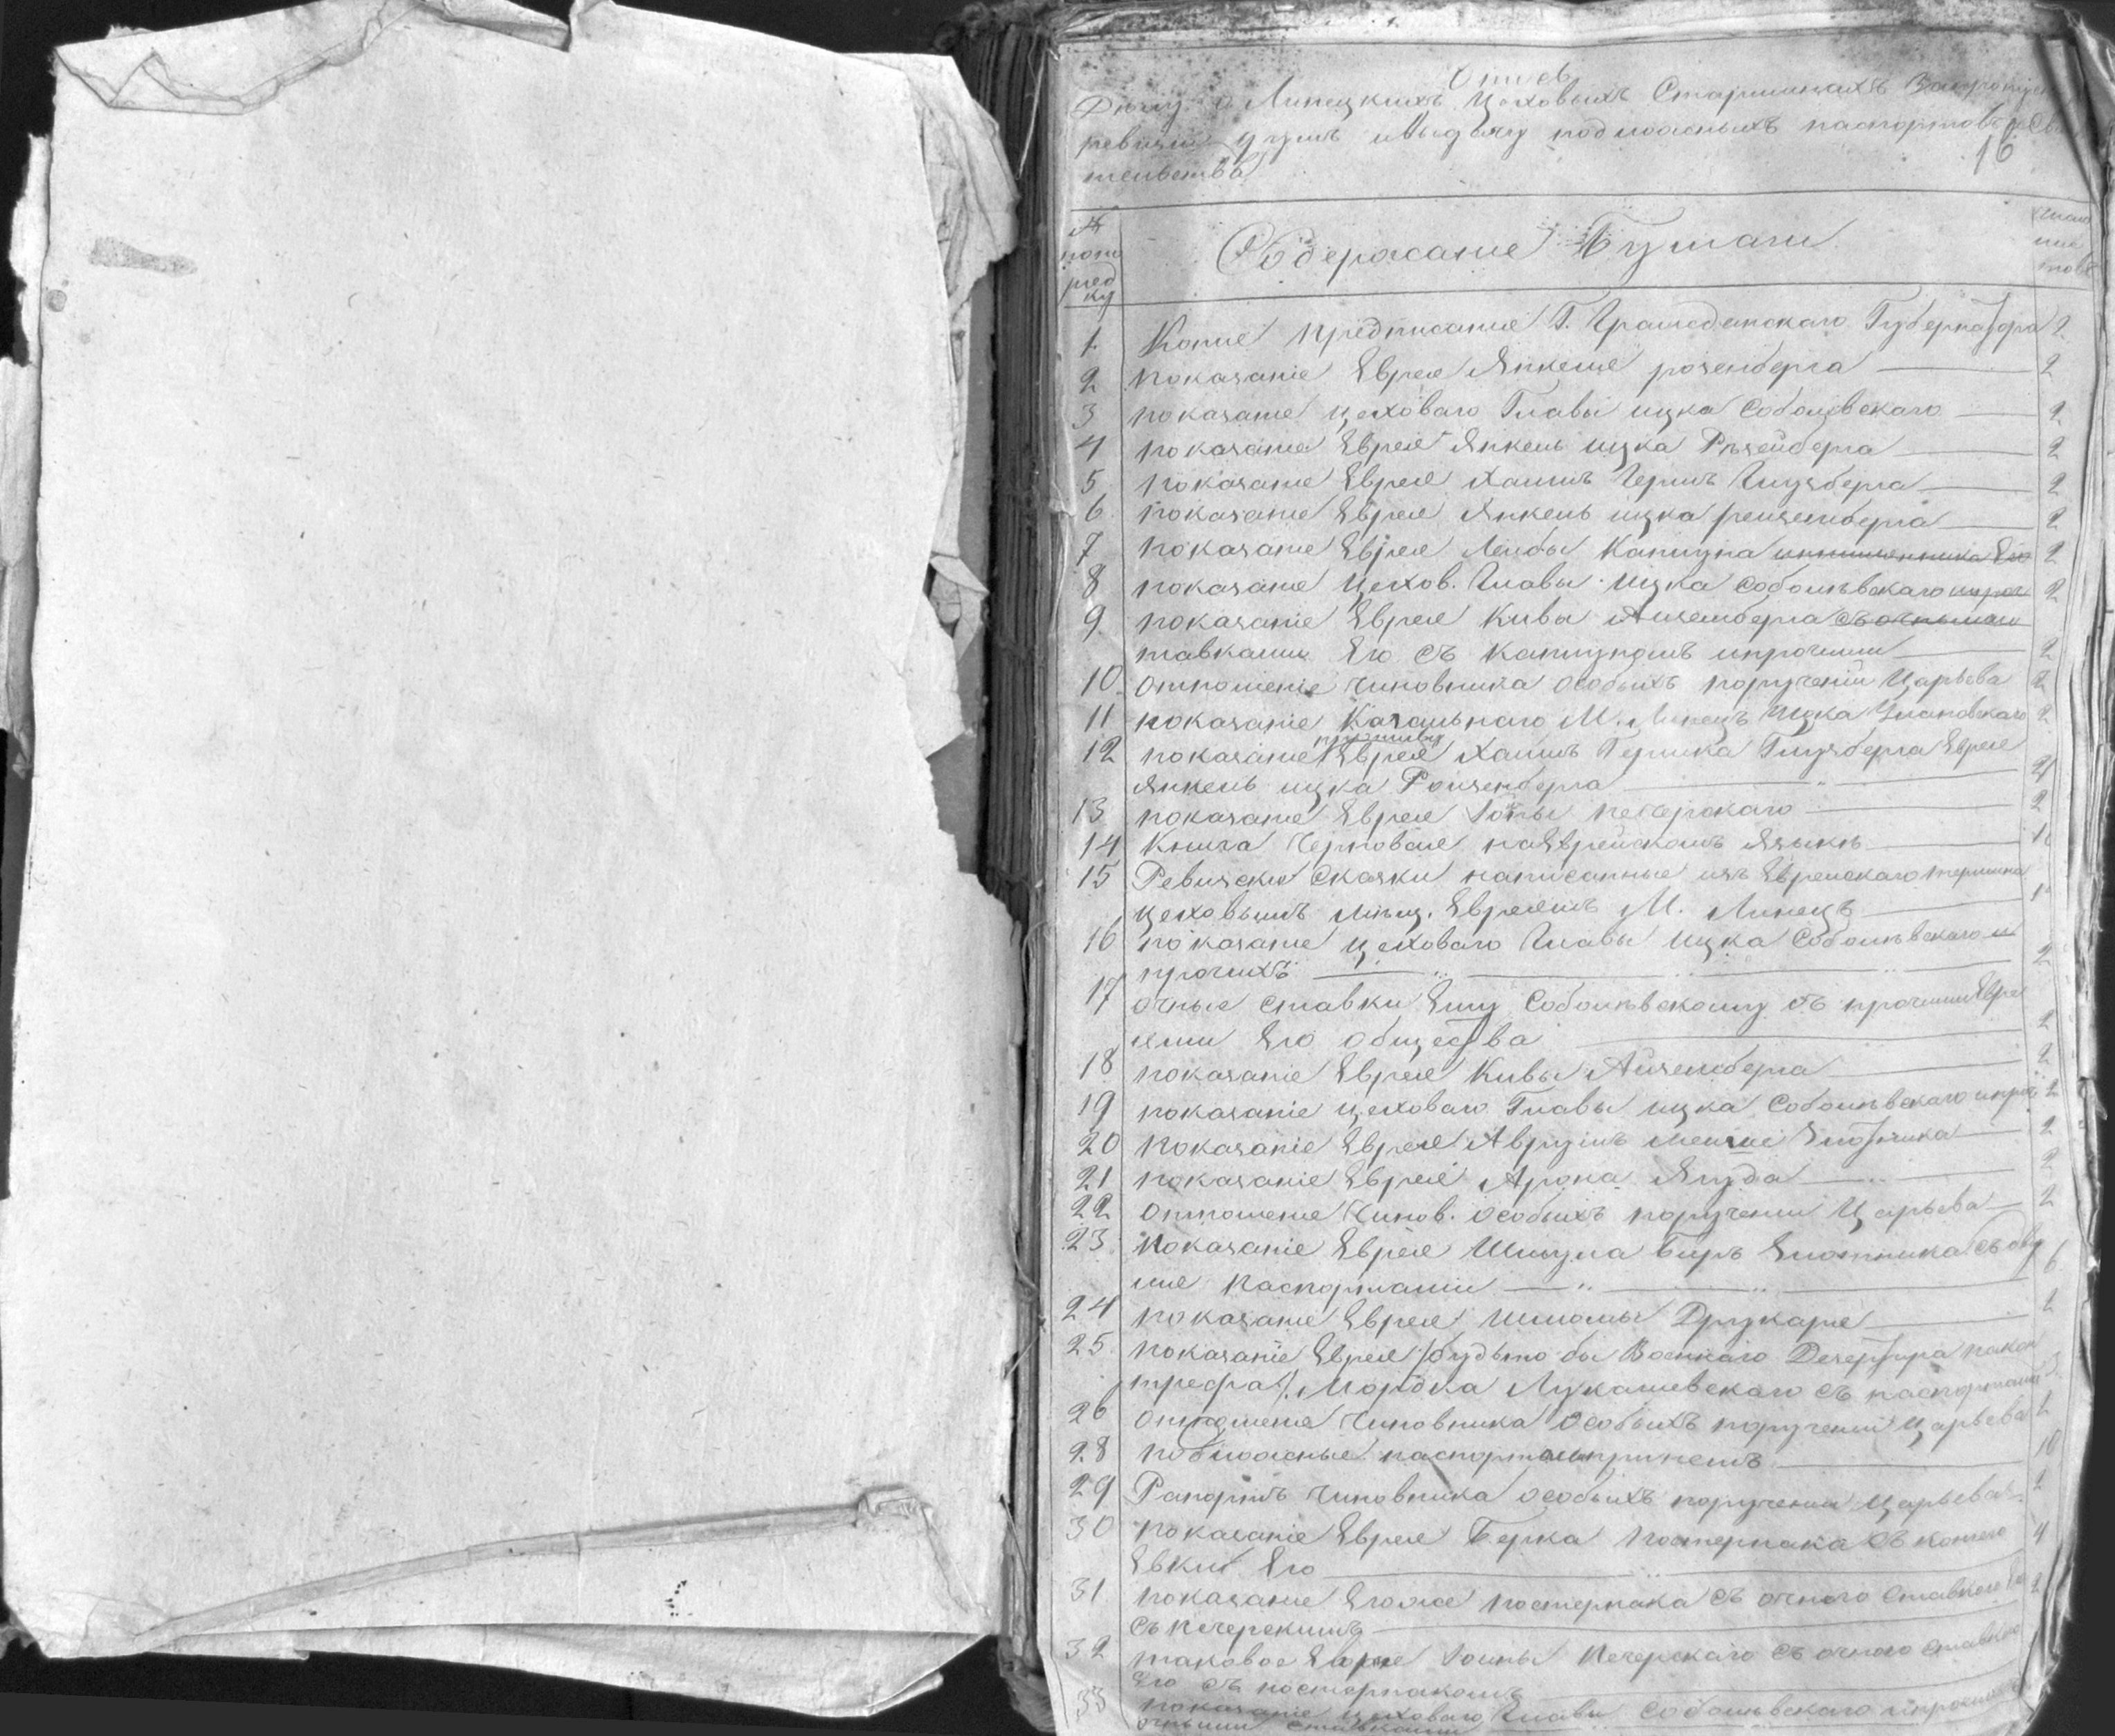 Опись
Делу о Липецкихъ Цеховыхъ Старшинахъ
ревизии душъ и выдачу подложныхъ паспортовъ
тельства
16
№
попо
ряд
ку
Содержание Бумаги
число
лис
товъ
1. Копие предписание Г. Гражданскаго Губернатора 2
2 показание Еврея Янкеля розенберга 2
3 показание цеховаго Главы ицка Соболевскаго 2
4 показание Еврея Янкель ицка Розенберга 2
5 показание Еврея Хаимъ Гершъ Глузберга 2
6 показание Еврея Янкель ицка ренземберга 2
7 показание Еврея Лейбы Капцуна 2
8 показание Цехов. Главы Ицка Собольвскаго 2
9 показание Еврея Кивы Айземберга
тавками Его съ капцуномъ ипрочими 2
10. отношение чиновника особыхъ поручений Царьева 2
11 показание Кагальнаго М. Липецъ Ицка Улановскаго 2
12 показание Еврея Хаимъ Гершка Глузберга Еврея
Янкель ицка Ройзенберга 2
13 показание Еврея Іоны печерскаго 2
14 Книга Черновая наЕврейскомъ Языкъ
15 Ревизские Сказки написанные изъ Еврейскаго
цеховымъ Евреямъ М. Липецъ
16 показание цеховаго Главы Ицка Собольвскаго и
прочихъ 2
17 очные ставки Ему Собольвскому съ прочими Евре
ями Его общества 2
18 показание Еврея Кивы Айземберга 2
19 показание цеховаго Главы ицка Собольвскаго ипроч 2
20 показание Еврея Аврумъ 2
21 показание Еврея Арона Ягуда 2
22 отношение Чинов. особыхъ поручении Царьева 2
23. показание Еврея Шмула Беръ съ дву
мя паспортами 6
24 показание Еврея Шломы Друкаря 2
25. показание Еврея /будьто бы Военнаго Дезертира
Мордка Лукашевскаго съ паспортами
26 отношение чиновника особыхъ поручений Царьева 2
28 подложные паспорты 10
29 Рапортъ чиновника особыхъ поручении Царьева 2
30 показание Еврея Берка постернака съ
Его 4
31 показание Егоже постернака съ очного ставкою
съ печерскимъ 2
32 таковое Еврея Іоины печерскаго съ очного ставкою
Его съ постернакомъ
33 показание цеховаго Главы Собольвскаго
очными ставками